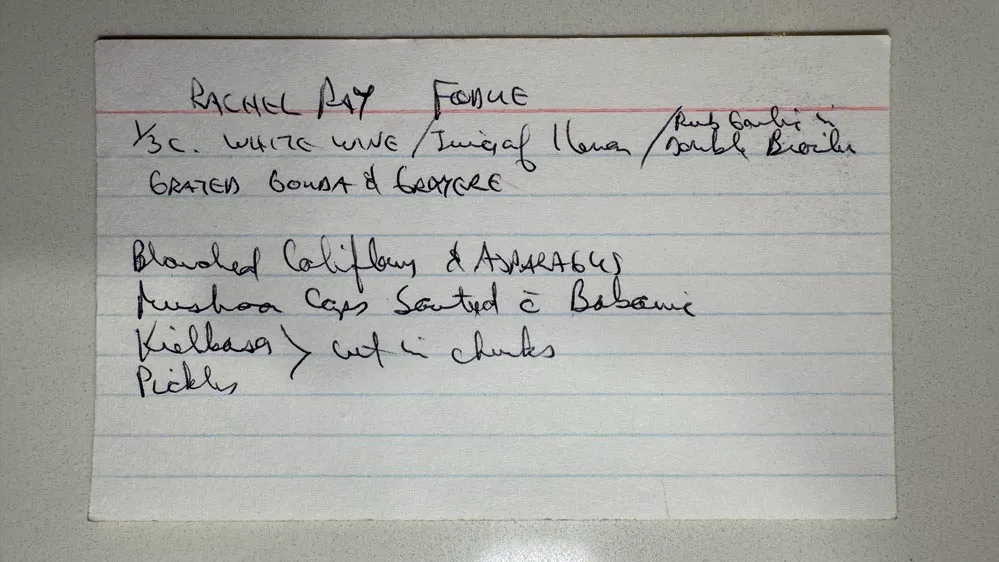 RACHEL RAY FODUE
1/3 c. WHITE WINE / Juice of 1 lemon / Rub Garlic in Double Broiler
GRATED GOUDA & GRUYERE
Blanched Califlowy & ASPARAGUS
Mushroom Caps Sauted c̄ Balsamic
Kielbasa > cut in chunks
Pickles